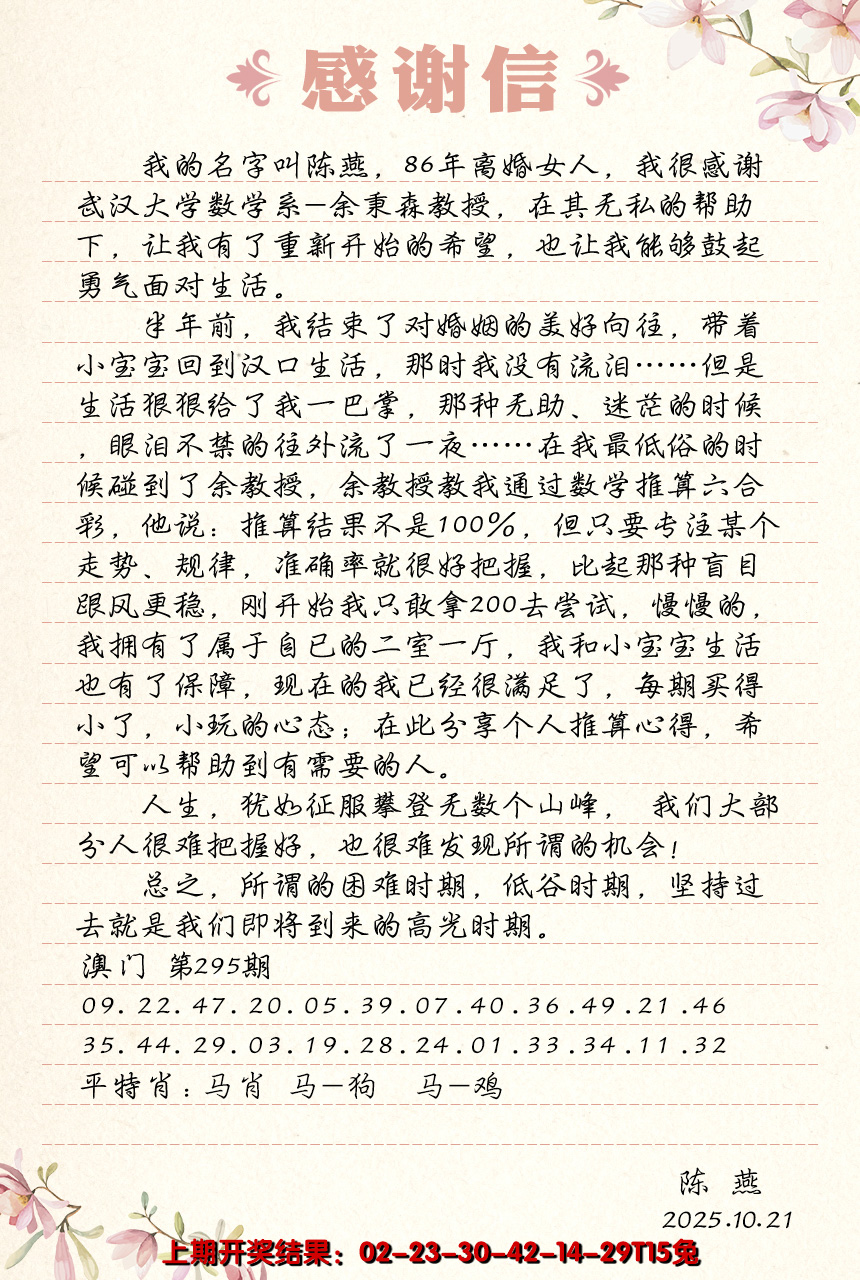 感谢信
我的名字叫陈燕，86年离婚女人，我很感谢
武汉大学数学系—余秉森教授，在其无私的帮助
下，让我有了重新开始的希望，也让我能够鼓起
勇气面对生活。
半年前，我结束了对婚姻的美好向往，带着
小宝宝回到汉口生活，那时我没有流泪……但是
生活狠狠给了我一巴掌，那种无助、迷茫的时候
，眼泪不禁的往外流了一夜……在我最低俗的时
候碰到了余教授，余教授教我通过数学推算六合
彩，他说：推算结果不是100%，但只要专注某个
走势、规律，准确率就很好把握，比起那种盲目
跟风更稳，刚开始我只敢拿200去尝试，慢慢的，
我拥有了属于自已的二室一厅，我和小宝宝生活
也有了保障，现在的我已经很满足了，每期买得
小了，小玩的心态；在此分享个人推算心得，希
望可以帮助到有需要的人。
人生，犹如征服攀登无数个山峰， 我们大部
分人很难把握好，也很难发现所谓的机会！
总之，所谓的困难时期，低谷时期，坚持过
去就是我们即将到来的高光时期。
澳门 第295期
09.22.47.20.05.39.07.40.36.49.21.46
35.44.29.03.19.28.24.01.33.34.11.32
平特肖：马肖 马—狗 马—鸡
陈 燕
2025.10.21
上期开奖结果：02-23-30-42-14-29T15兔